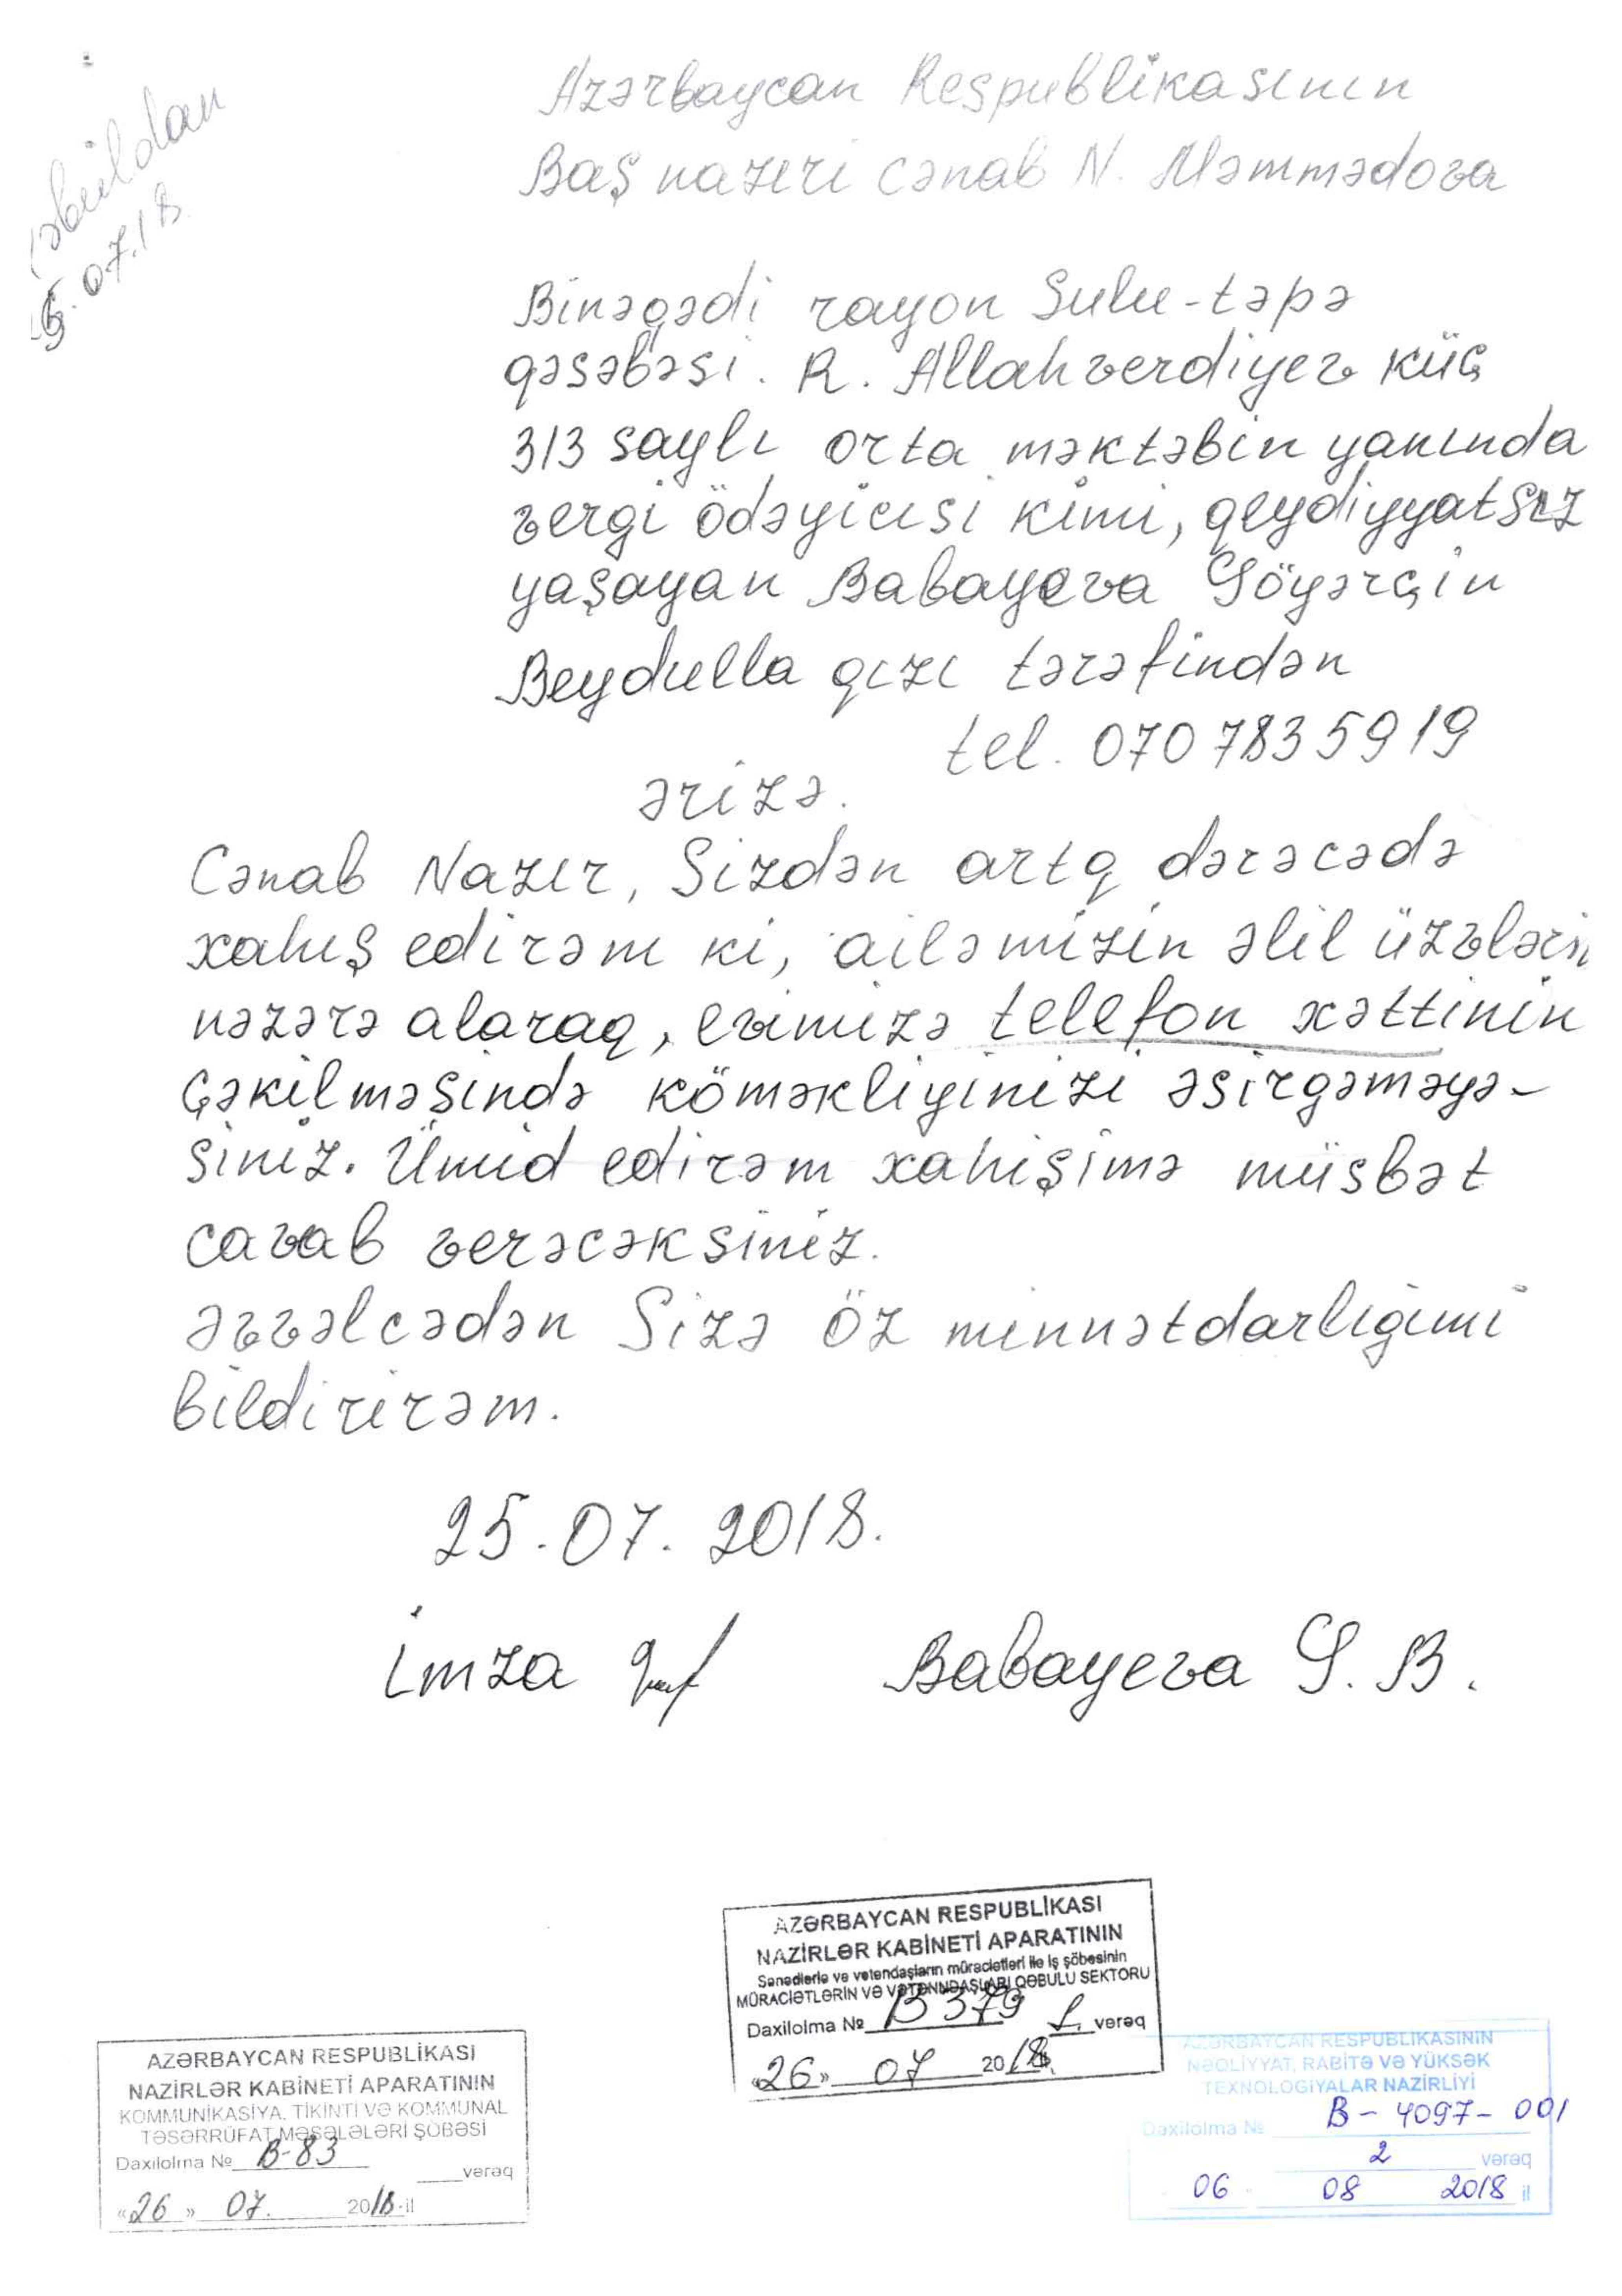 qəbuldan
25.07.18
Azərbaycan Respublikasının
Baş naziri cənab N. Məmmədova
Binəqədi rayon Sulu-təpə
qəsəbəsi. R. Allahverdiyev küç
313 saylı orta məktəbin yanında
vergi ödəyicisi kimi, qeydiyyatsız
yaşayan Babayeva Göyərçin
Beydulla qızı tərəfindən
tel. 070 783 59 19
ərizə.
Cənab Nazir, Sizdən artq dərəcədə
xahış edirəm ki, ailəmizin əlil üzvləri
nəzərə alaraq, evimizə telefon xəttinin
çəkilməsində köməkliyinizi əsirgəməyə-
siniz. Ümid edirəm xahişimə müsbət
cavab verəcəksiniz.
Əvvəlcədən Sizə öz minnətdarlığımi
bildirirəm.
25.07.2018.
imza Babayeva G. B.
AZƏRBAYCAN RESPUBLİKASI
NAZİRLƏR KABİNETİ APARATININ
Sənədlərlə və vətəndaşların müraciətləri ilə iş şöbəsinin
MÜRACİƏTLƏRİN VƏ VƏTƏNDAŞLARI QƏBULU SEKTORU
Daxilolma № B 379 1. vərəq
«26» 07 2018
AZƏRBAYCAN RESPUBLİKASI
NAZİRLƏR KABİNETİ APARATININ
KOMMUNİKASİYA, TİKİNTİ VƏ KOMMUNAL
TƏSƏRRÜFAT MƏSƏLƏLƏRİ ŞÖBƏSİ
Daxilolma № B-83
vərəq
«26» 07. 2018-il
AZƏRBAYCAN RESPUBLİKASININ
NƏQLİYYAT, RABİTƏ VƏ YÜKSƏK
TEXNOLOGİYALAR NAZİRLİYİ
Daxilolma № B-4097-001
2 vərəq
06 08 2018 il